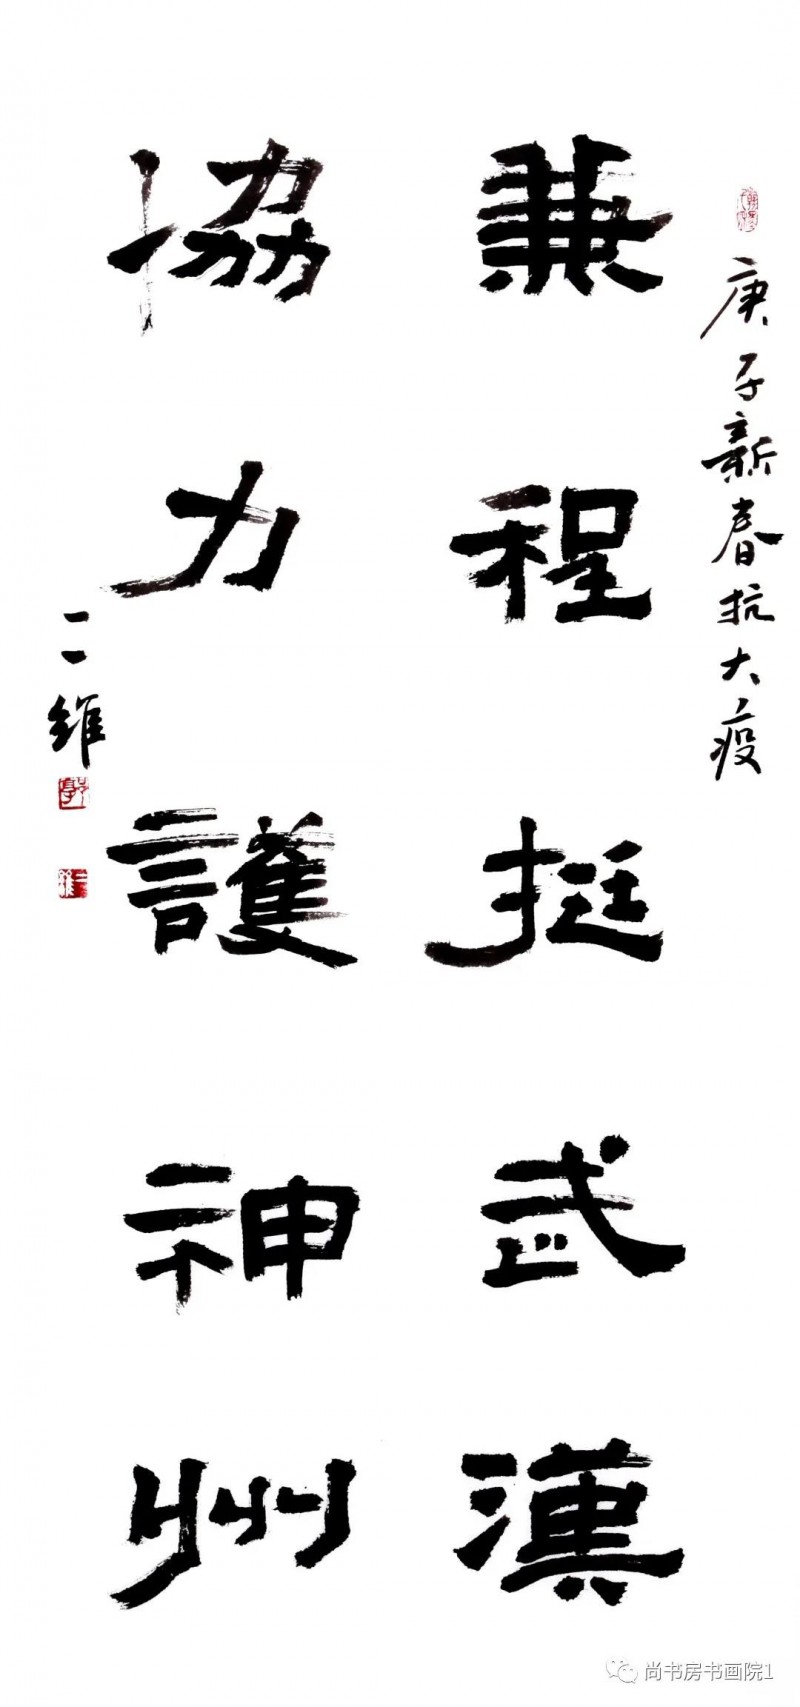 庚子新春抗大疫
兼程挺武漢
協力護神州
三維
尚书房书画院1